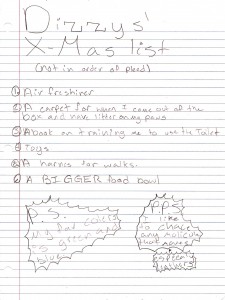 Dizzys'
X-Mas list
(not in order of need)
① Air freshiner
② A carpet for when I come out of the
box and have litter on my paws
③ A book on training me to use the Toilet
④ Toys
⑤ A harnis for walks.
⑥ A BIGGER food bowl
P.S.
My fav colers
is green and
blue
P.P.S
I like
to chase
any
that moves!